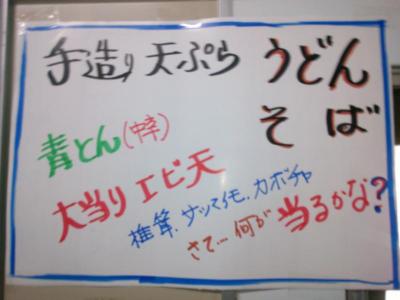 手造り天ぷら うどん
そば
青とん(中辛)
大当り エビ天
椎茸、サツマイモ、カボチャ
さて…何が当るかな?